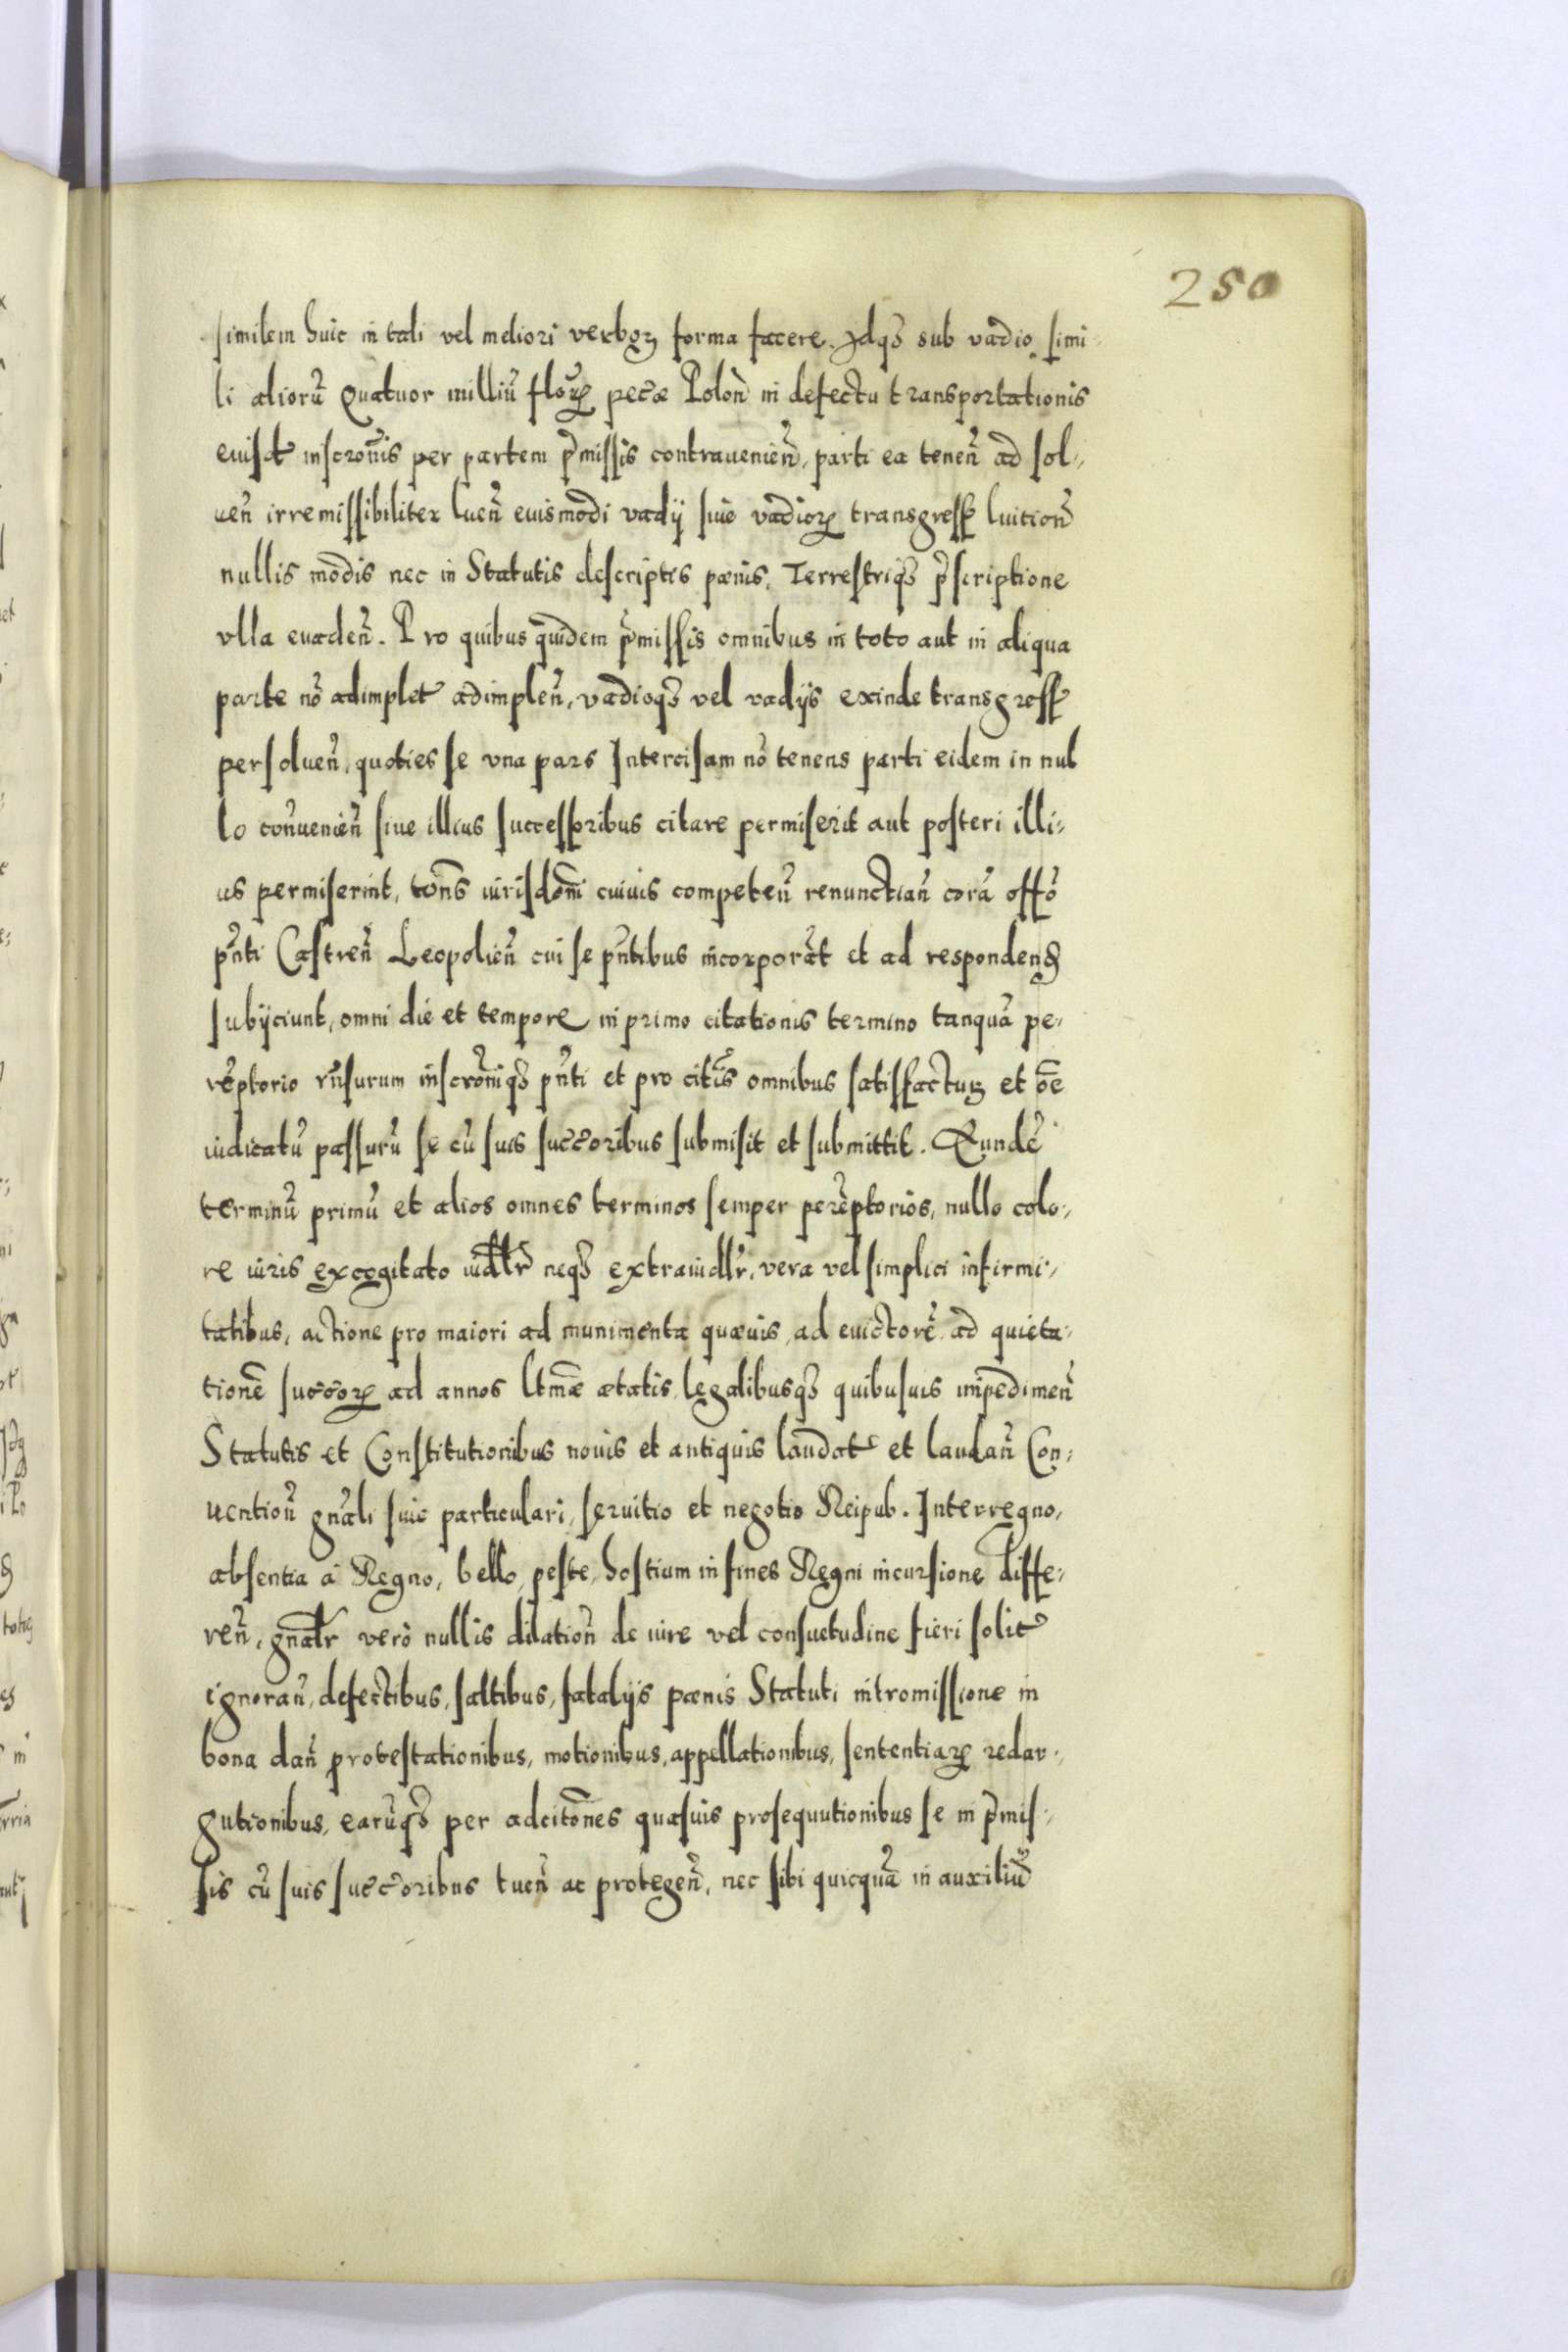 250
similem huic in tali vel meliori verboꝝ forma facere. Idqꝫ sub vadio simi-
li alioru̅ Quatuor milliu̅ floꝝ pec̅æ Polon̅ in defectu transportationis
euisd̅ inscro̅nis per partem p̅missis contrauenien̅, parti ea tenen̅ ad sol-
uen̅ irremissibiliter luen̅ euismodi vadij siue vadioꝝ transgress̅ luition̅
nullis modis nec in Statutis descriptis pænis, Terrestriqꝫ p̅scriptione
vlla euaden̅. Pro quibus quidem p̅missis omnibus in toto aut in aliqua
parte no̅ adimplet̅ adimplen̅, vadioqꝫ vel vadijs exinde transgress̅
persoluen̅, quoties se vna pars Intercisam no̅ tenens parti eidem in nul
lo conuenien̅ siue illius successoribus citare permiserit aut posteri illi-
us permiserint, to̅ns iurisdo̅ni cuiuis competen̅ renunctian̅ cora̅ offo̅
pn̅ti Castren̅ Leopolien̅ cui se pn̅tibus incorporat̅ et ad responden̅d
subijciunt, omni die et tempore in primo citationis termino tanqua̅ pe-
re̅ptorio rn̅surum inscro̅niqꝫ pn̅ti et pro cit̅is omnibus satisfactuꝝ et o̅e
iudicatu̅ passuru̅ se cu̅ suis succ̅oribus submisit et submittit. Eunde̅
terminu̅ primu̅ et alios omnes terminos semper pere̅ptorios, nullo colo-
re iuris excogitato iudl̅r neqꝫ extraiudl̅r, vera vel simplici infirmi-
tatibus, actione pro maiori ad munimenta quæuis, ad euictore̅ ad quieta-
tione̅ succ̅oꝝ ad annos ltm̅æ ætatis, legalibusqꝫ quibusuis impedimen̅
Statutis et Constitutionibus nouis et antiquis laudat̅ et laudan̅ Con-
uention̅ gn̅ali siue particulari, seruitio et negotio Reipub. Interregno,
absentia à Regno, bello, peste, hostium in fines Regni incursione diffe-
ren̅, gn̅alr̅ verò nullis dilation̅ de iure vel consuetudine fieri solit̅
ignoran̅, defectibus, saltibus, fatalijs pænis Statuti intromissione in
bona dan̅ protestationibus, motionibus, appellationibus, sententiaꝝ redar-
gutionibus, earu̅qꝫ per adcito̅nes quasuis prosequutionibus se in p̅mis-
sis cu̅ suis succ̅oribus tuen̅ ac protegen̅, nec sibi quicqua̅ in auxiliu̅